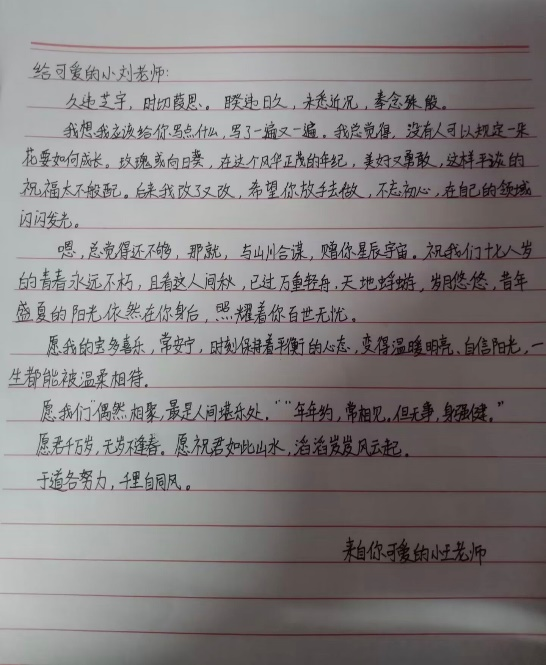 给可爱的小刘老师:
久违芝宇,时切葭思。睽违日久,未悉近况,奉念殊殷。
我想我应该给你写点什么,写了一遍又一遍。我总觉得,没有人可以规定一朵
花要如何成长。玫瑰或向日葵,在这个风华正茂的年纪,美好又勇敢,这样平淡的
祝福太不般配。后来我改了又改,希望你放手去做,不忘初心,在自己的领域
闪闪发光。
嗯,总觉得还不够,那就,与山川合谋,赠你星辰宇宙。祝我们十七八岁
的青春永远不朽,且看这人间秋,已过万重轻舟,天地蜉蝣,岁月悠悠,昔年
盛夏的阳光依然在你身后,照耀着你百世无忧。
愿我的宝多喜乐,常安宁,时刻保持着平衡的心态,变得温暖明亮、自信阳光,一
生都能被温柔相待。
愿我们“偶然相聚,最是人间堪乐处。”“年年约,常相见。但无事,身强健。”
愿君千万岁,无岁不逢春。愿祝君如此山水,滔滔岌岌风云起。
于道各努力,千里自同风。
来自你可爱的小王老师